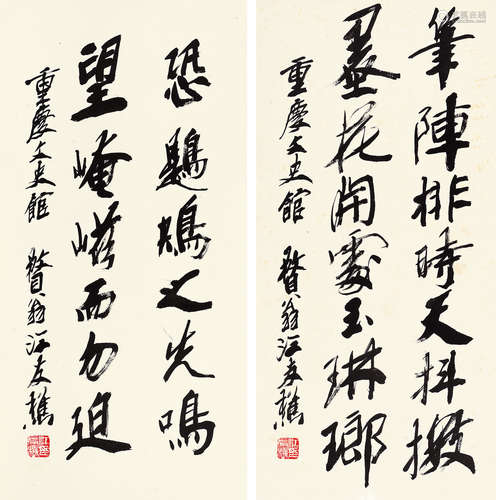 筆陣排時天抖擻
墨花開處玉琳瑯
重慶文史館 瞀翁江友樵
恐鶗鴂之先鳴
望崦嵫而勿迫
重慶文史館 瞀翁江友樵